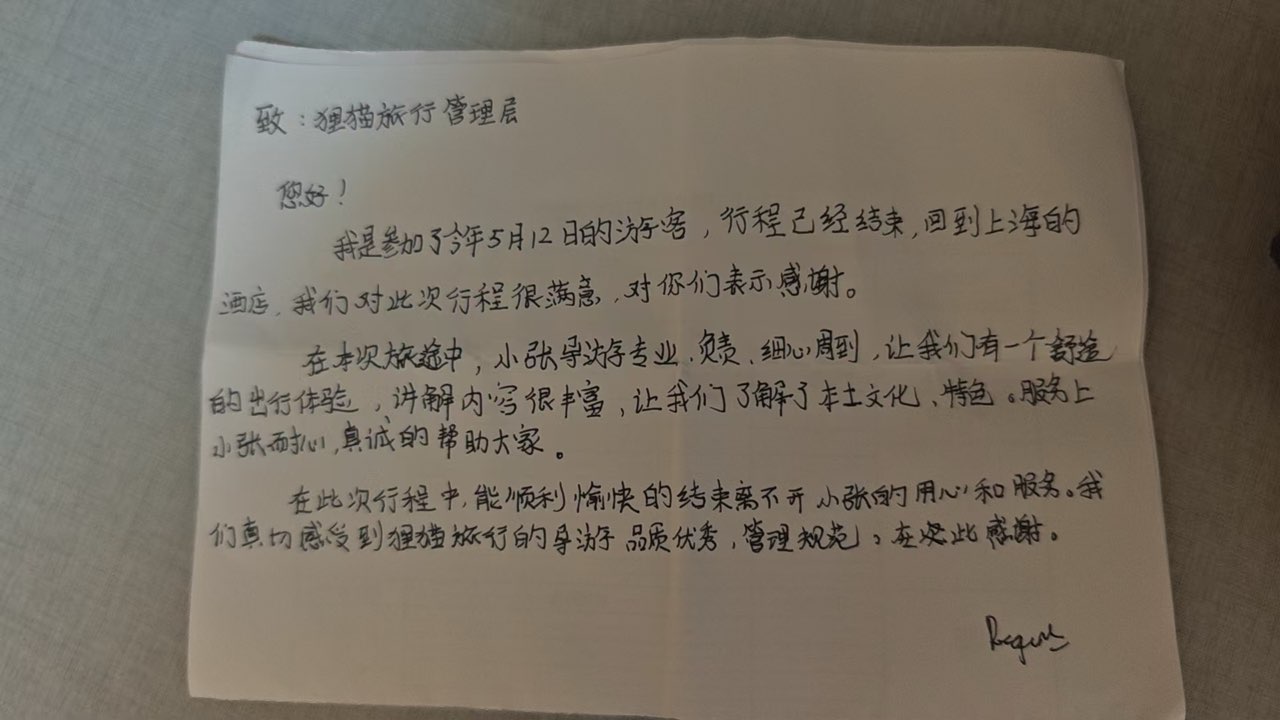 致：狸猫旅行管理层
您好！
我是参加了今年5月12日的游客，行程已经结束，回到上海的
酒店，我们对此次行程很满意，对你们表示感谢。
在本次旅途中，小张导游专业、负责、细心周到，让我们有一个舒适
的出行体验，讲解内容很丰富，让我们了解了本土文化、特色。服务上
小张耐心，真诚的帮助大家。
在此次行程中，能顺利愉快的结束离不开小张的用心和服务。我
们真切感受到狸猫旅行的导游品质优秀，管理规范。在此感谢。